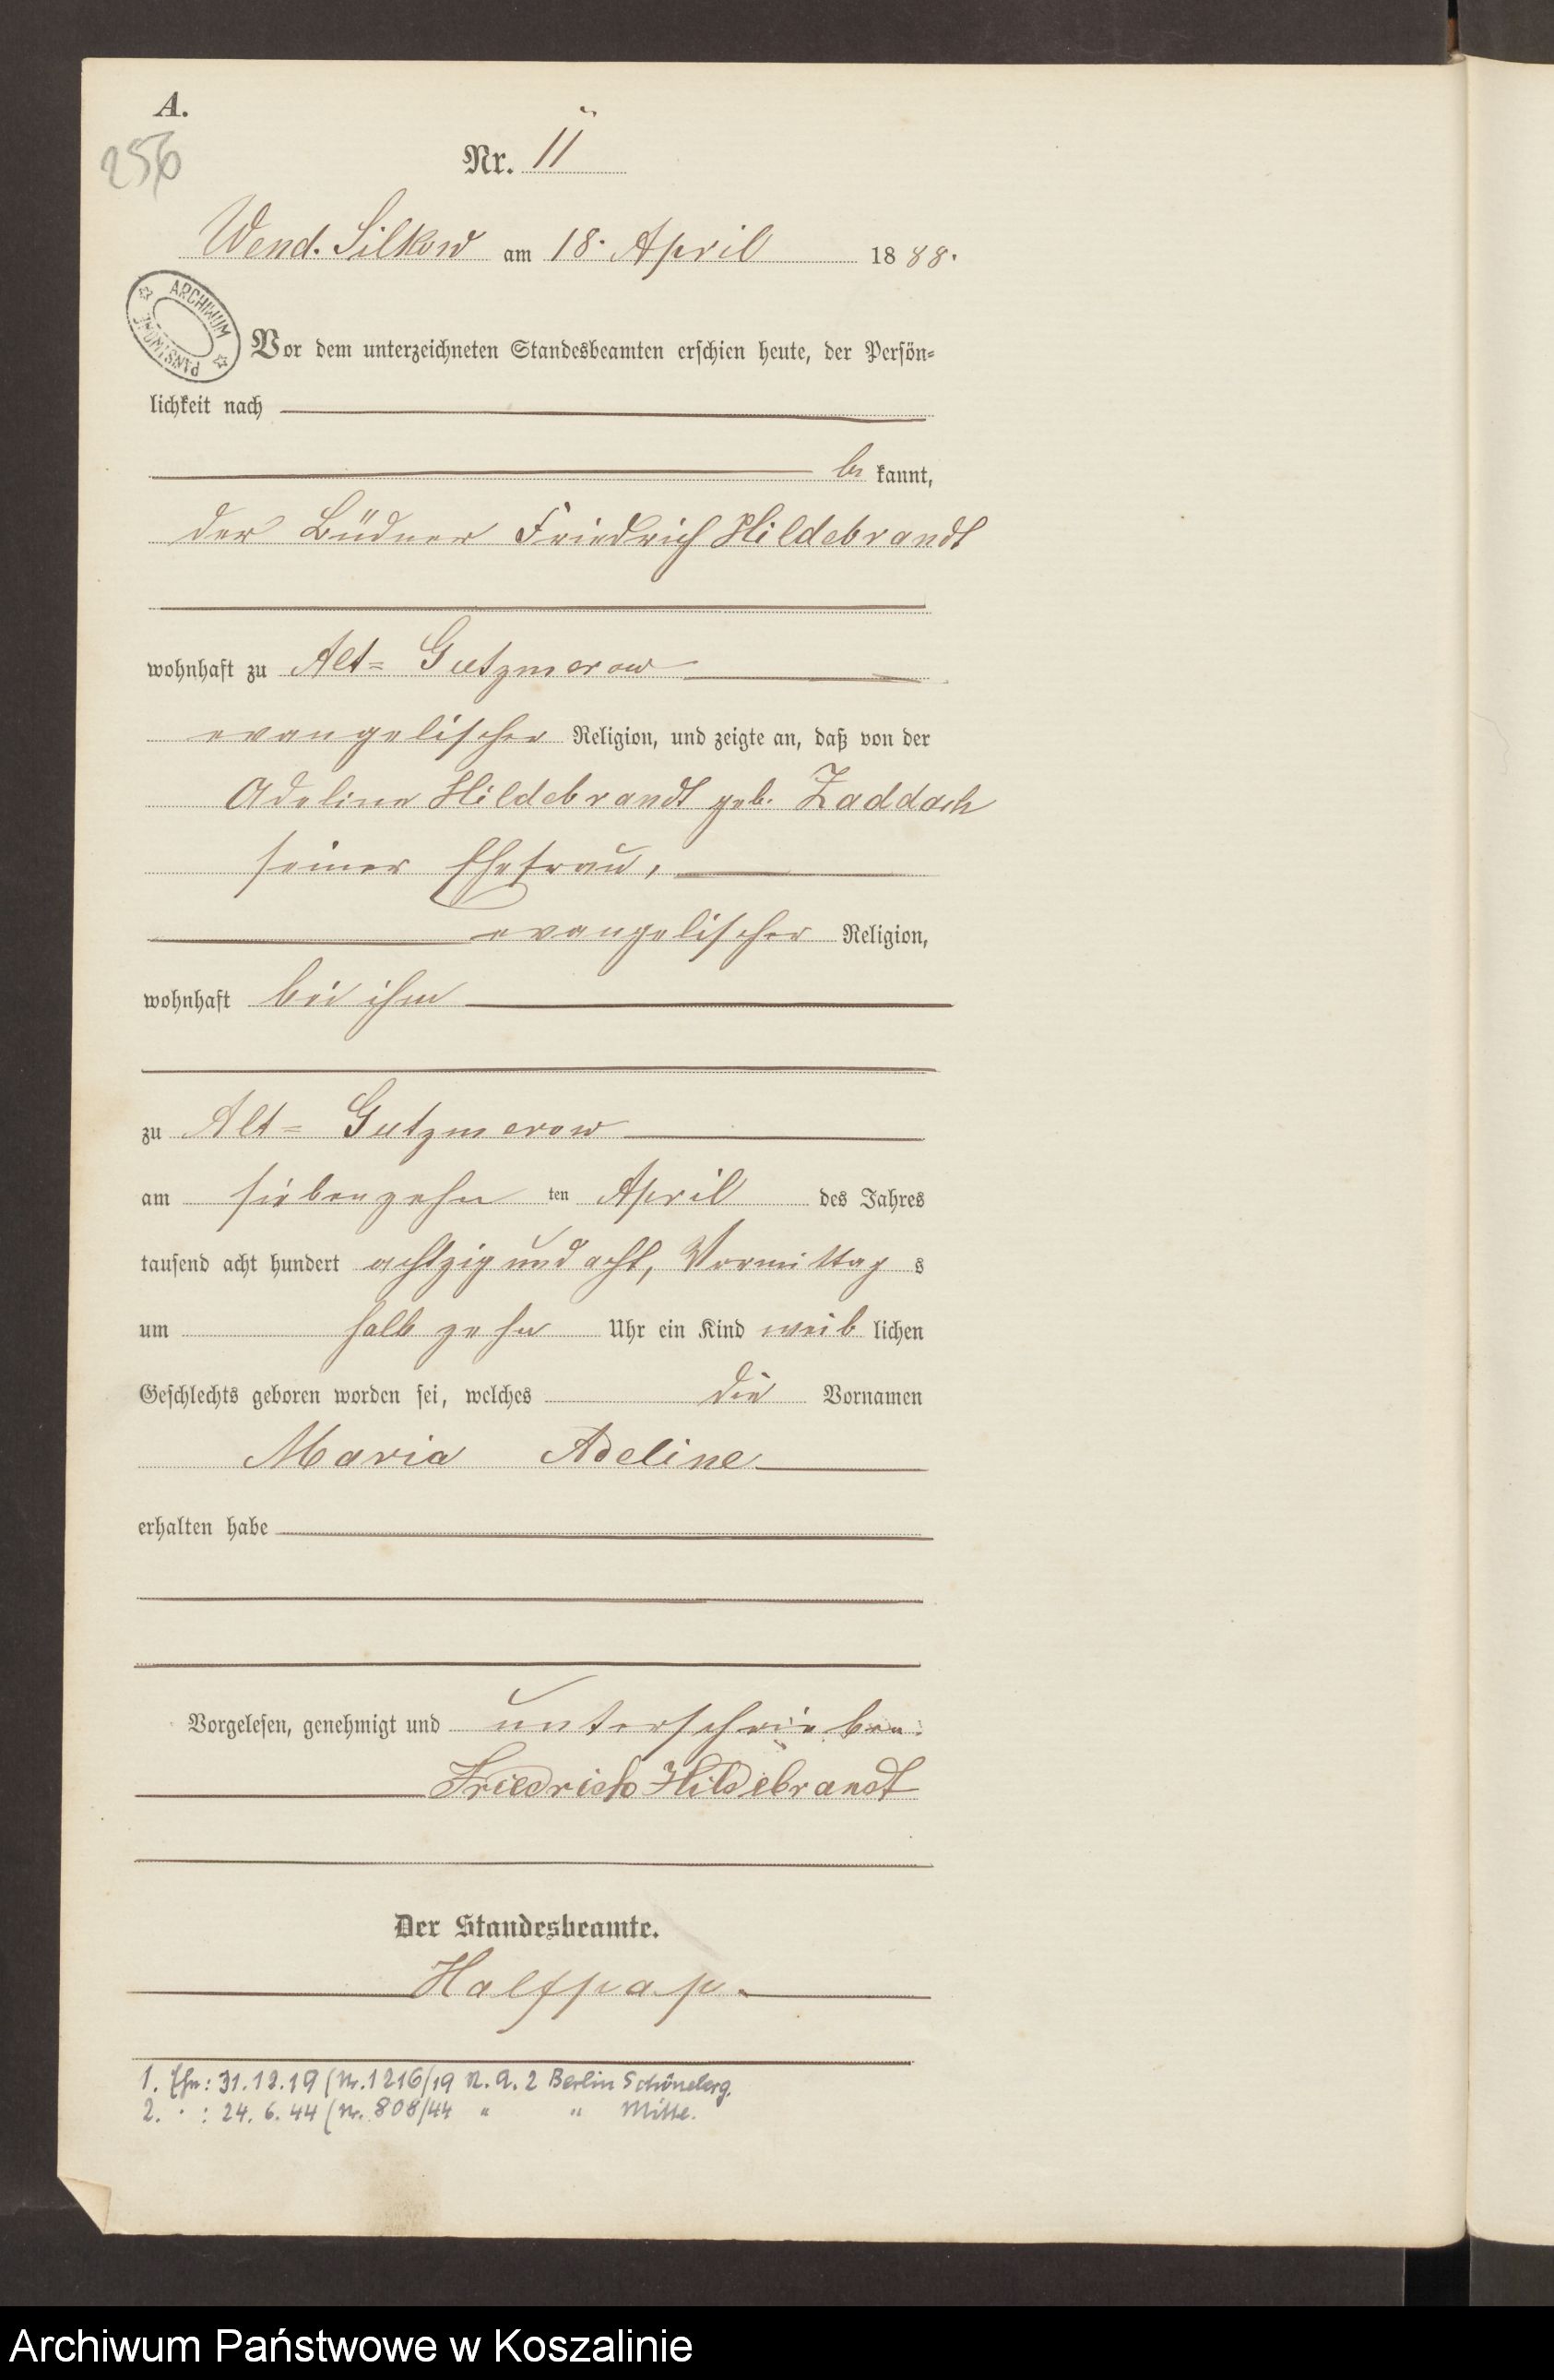 A.
256
Nr. 11
Wend. Silkow am 18. April 1888.
ARCHIWUM
PAŃSTWOWE
Vor dem unterzeichneten Standesbeamten erschien heute, der Persön-
lichkeit nach
be kannt,
der Büdner Friedrich Hildebrandt
wohnhaft zu Alt- Gutzmerow
evangelischer Religion, und zeigte an, daß von der
Adeline Hildebrandt geb. Zaddach
seiner Ehefrau,
evangelischer Religion,
wohnhaft bei ihm
zu Alt- Gutzmerow
am siebenzehn ten April des Jahres
tausend acht hundert achtzig und acht, Vormittag s
um halb zehn Uhr ein Kind weib lichen
Geschlechts geboren worden sei, welches die Vornamen
Maria Adeline
erhalten habe
Vorgelesen, genehmigt und unterschrieben.
Friedrich Hildebrandt
Der Standesbeamte.
Halfpap.
1. Ehe: 31.12.19 (Nr. 1216/19 St. A. 2 Berlin Schöneberg.
2. " : 24. 6. 44 (Nr. 808/44 " " Mitte.
Archiwum Państwowe w Koszalinie